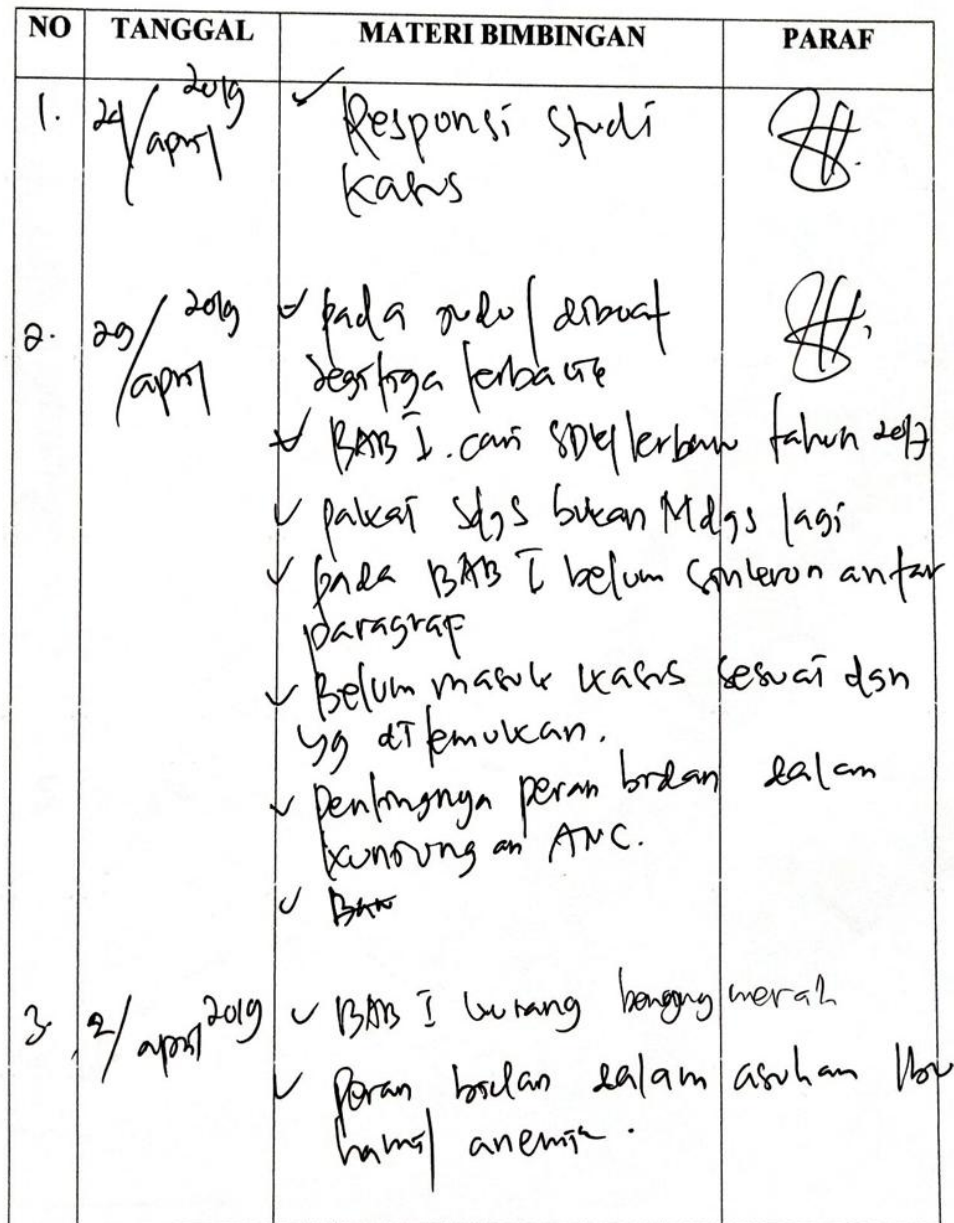 NO TANGGAL MATERI BIMBINGAN PARAF
1. 24/april 2019 Responsi studi
kasus
2. 29/april 2019 pada judul dibuat
segitiga terbalik
BAB I. cari SDKI terbaru tahun 2017
pakai Sdgs bukan Mdgs lagi
pada BAB I belum sinkron antar
paragraf
Belum masuk kasus sesuai dgn
yg ditemukan.
pentingnya peran bidan dalam
kunjungan ANC.
3. 2/april 2019 BAB I kurang benang merah
peran bidan dalam asuhan Ibu
hamil anemia.